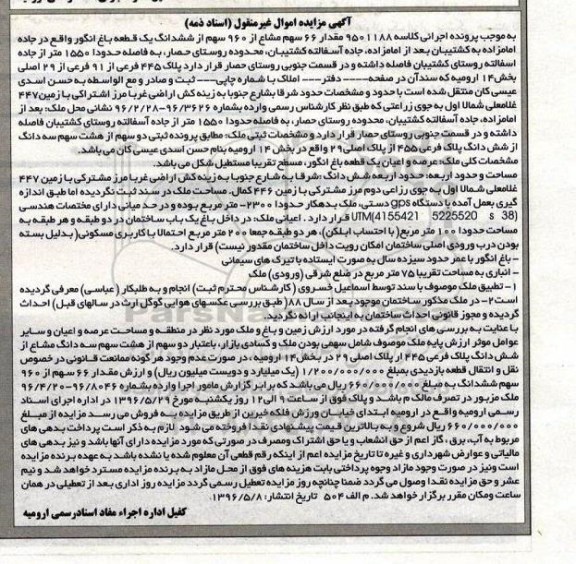 آگهی مزایده اموال غیرمنقول (اسناد ذمه)
به موجب پرونده اجرائی کلاسه 9501188 مقدار 66 سهم مشاع از 960 سهم از ششدانگ یک قطعه باغ انگور واقع در جاده
امامزاده به کشتیبان بعد از امامزاده، جاده آسفالته کشتیبان، محدوده روستای حصار، به فاصله حدودا 1550 متر از جاده
اسفالته روستای کشتیبان فاصله داشته و در قسمت جنوبی روستای حصار قرار دارد پلاک 445 فرعی از 91 فرعی از 29 اصلی
بخش 14 ارومیه که سند آن در صفحه---- دفتر--- املاک با شماره چاپی--- ثبت و صادر و مع الواسطه به حسن اسدی
عیسی کان منتقل شده است با حدود و مشخصات حدود شرقا بشارع جنوبا به زینه کش اراضی غربا مرز اشتراکی با زمین 447
غلامعلی شمالا اول به جوی زراعتی که طبق نظر کارشناس رسمی وارده بشماره 96/3626-96/2/28 نشانی محل ملک: بعد از
امامزاده، جاده آسفالته کشتیبان، محدوده روستای حصار، به فاصله حدودا 1550 متر از جاده آسفالته روستای کشتیبان فاصله
داشته و در قسمت جنوبی روستای حصار قرار دارد و مشخصات ثبتی ملک: مطابق پرونده ثبتی دو سهم از هشت سهم سه دانگ
از شش دانگ پلاک فرعی 455 از پلاک اصلی 29 واقع در بخش 14 ارومیه بنام حسن اسدی عیسی کان می باشد.
مشخصات کلی ملک: عرصه و اعیان یک قطعه باغ انگور، مسطح تقریبا مستطیل شکل می باشد.
مساحت و حدود اربعه: حدود اربعه شش دانگ: شرقا به شارع جنوبا به زینه کش اراضی غربا مرز مشترکی با زمین 447
غلامعلی شمالا اول به جوی زراعی دوم مرز مشترکی با زمین 446 کمال. مساحت ملک در سند ثبت نگردیده اما طبق اندازه
گیری بعمل آمده با دستگاه gps دستی، ملک بدهکار حدودا 2300- متر مربع بوده و در حد میانی دارای مختصات هندسی
UTM(4155421 5225520 s 38) قرار دارد. اعیانی ملک: در داخل باغ یک باب ساختمان در دو طبقه و هر طبقه به
مساحت حدودا 100 متر مربع( با احتساب ابلکن) ، هر دو طبقه جمعا 200 متر مربع احتمالا با کاربری مسکونی( بدلیل بسته
بودن درب ورودی اصلی ساختمان امکان رویت داخل ساختمان مقدور نیست) قرار دارد.
- باغ انگور با عمر حدود سیزده سال به صورت ایستاده با تیرک های سیمانی
- انباری به مساحت تقریبا 75 متر مربع در ضلع شرقی (ورودی) ملک
1- تطبیق ملک موصوف با سند توسط اسماعیل خسروی ( کارشناس محترم ثبت) انجام و به طلبکار (عباسی) معرفی گردیده
است 2- در ملک مذکور ساختمان موجود بعد از سال 88 (طبق بررسی عکسهای هوایی گوگل ارث در سالهای قبل) احداث
گردیده و مجوز قانونی احداث ساختمان به اینجانب ارائه نگردید.
با عنایت به بررسی های انجام گرفته در مورد ارزش زمین و باغ و ملک مورد نظر در منطقه و مساحت عرصه و اعیان و سایر
عوامل موثر ارزش پایه ملک موصوف شامل سهمی بودن ملک و کسادی بازار، باعتبار دو سهم از هشت سهم سه دانگ مشاع از
شش دانگ پلاک فرعی 445 از پلاک اصلی 29 در بخش 14 ارومیه، در صورت عدم وجود هر گونه ممانعت قانونی در خصوص
نقل و انتقال قطعه بازدیدی بمبلغ 1/200/000/000 (یک میلیارد و دویست میلیون ریال) و ارزش مقدار 66 سهم از 960
سهم ششدانگ به مبلغ 660/000/000 ریال می باشد که برابر گزارش مامور اجرا وارده بشماره 96/8046-96/4/20
ملک مزبور در تصرف مالک م باشد و پلاک فوق از ساعت 9 الی 12 روز یکشنبه مورخ 1396/5/29 در اداره اجرای اسناد
رسمی ارومیه واقع در ارومیه ابتدای خیابان ورزش فلکه خیرین از طریق مزایده به فروش می رسد مزایده از مبلغ
660/000/000 ریال شروع و به بالاترین قیمت پیشنهادی نقدا فروخته می شود لازم به ذکر است پرداخت بدهی های
مربوط به آب، برق، گاز اعم از حق انشعاب و یا حق اشتراک و مصرف در صورتی که مورد مزایده دارای آنها باشد و نیز بدهی های
مالیاتی و عوارض شهرداری و غیره تا تاریخ مزایده اعم از اینکه رقم قطعی آن معلوم شده یا نشده باشد به عهده برنده مزایده
است ونیز در صورت وجود مازاد وجوه پرداختی بابت هزینه های فوق از محل مازاد به برنده مزایده مسترد خواهد شد و نیم
عشر و حق مزایده نقدا وصول می گردد ضمنا چنانچه روز مزایده تعطیل رسمی گردد مزایده روز اداری بعد از تعطیلی در همان
ساعت ومکان مقرر برگزار خواهد شد. م الف 504 تاریخ انتشار: 1396/5/8
کفیل اداره اجراء مفاد اسنادرسمی ارومیه